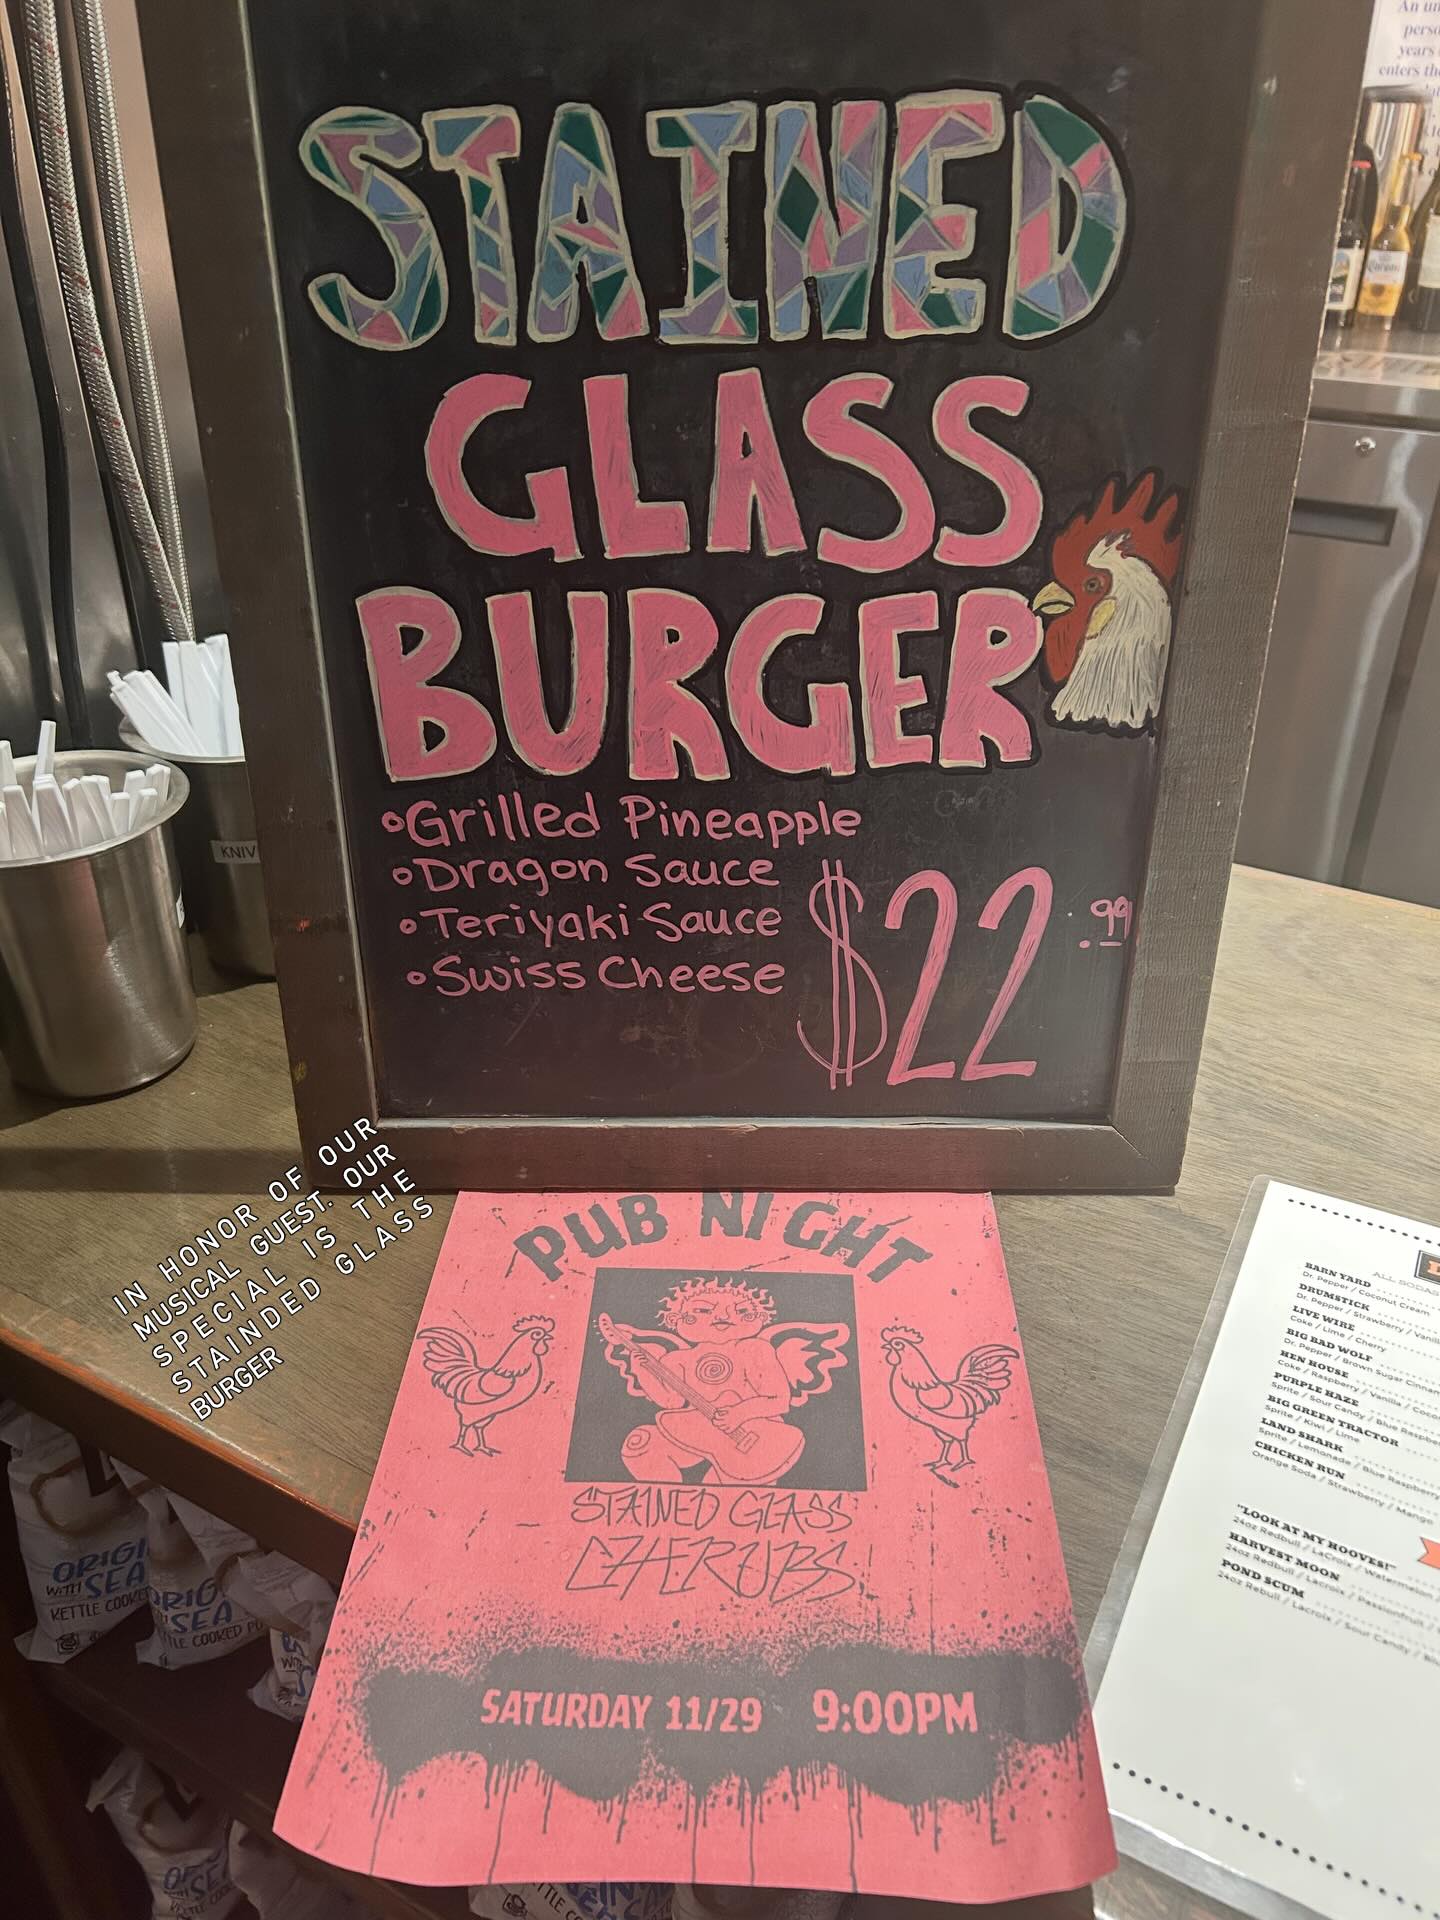 STAINED
GLASS
BURGER
•Grilled Pineapple
•Dragon Sauce
•Teriyaki Sauce
•Swiss Cheese
$22.99
KNIV
Corona
An un
perso
years
enters the
IN HONOR OF OUR
MUSICAL GUEST. OUR
SPECIAL IS THE
STAINDED GLASS
BURGER
PUB NIGHT
STAINED GLASS
CHERUBS
SATURDAY 11/29 9:00PM
ALL SODAS
BARN YARD
Dr. Pepper / Coconut Cream
DRUMSTICK
Dr. Pepper / Strawberry / Vanill
LIVE WIRE
Coke / Lime / Cherry
BIG BAD WOLF
Dr. Pepper / Brown Sugar Cinnam
HEN HOUSE
Coke / Raspberry / Vanilla / Coco
PURPLE HAZE
Sprite / Sour Candy / Blue Raspber
BIG GREEN TRACTOR
Sprite / Kiwi / Lime
LAND SHARK
Sprite / Lemonade / Blue Raspberry
CHICKEN RUN
Orange Soda / Strawberry / Mango
"LOOK AT MY HOOVES!"
24oz Redbull / LaCroix / Watermelon
HARVEST MOON
24oz Redbull / Lacroix / Passionfruit /
POND SCUM
24oz Rebull / Lacroix / Sour Candy / Blu
ORIGI
WITH SEA
KETTLE COOKED
ORIG
SEA
TLE COOKED PO